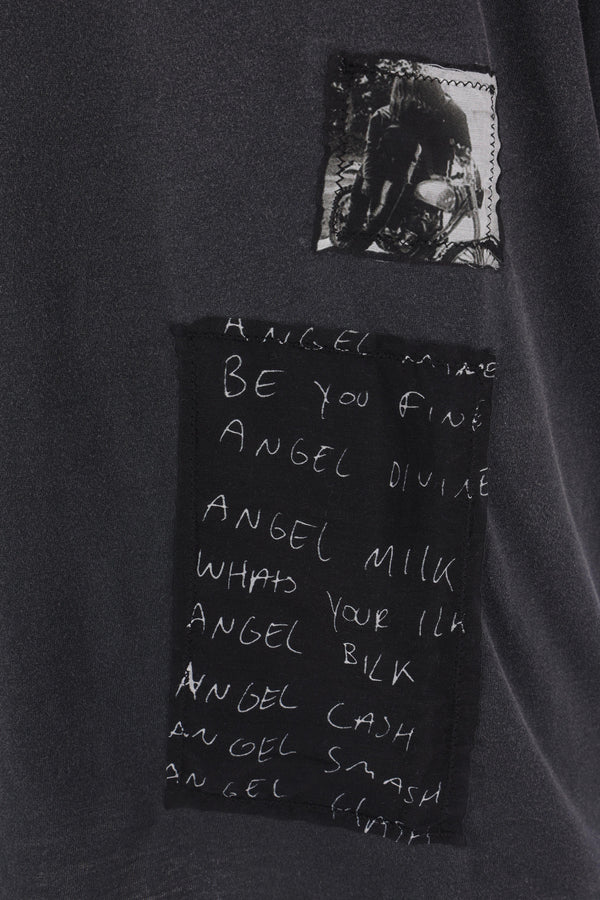 ANGEL MINE
BE YOU FINE
ANGEL DIVINE
ANGEL MILK
WHATS YOUR ILK
ANGEL BILK
ANGEL CASH
ANGEL SMASH
ANGEL